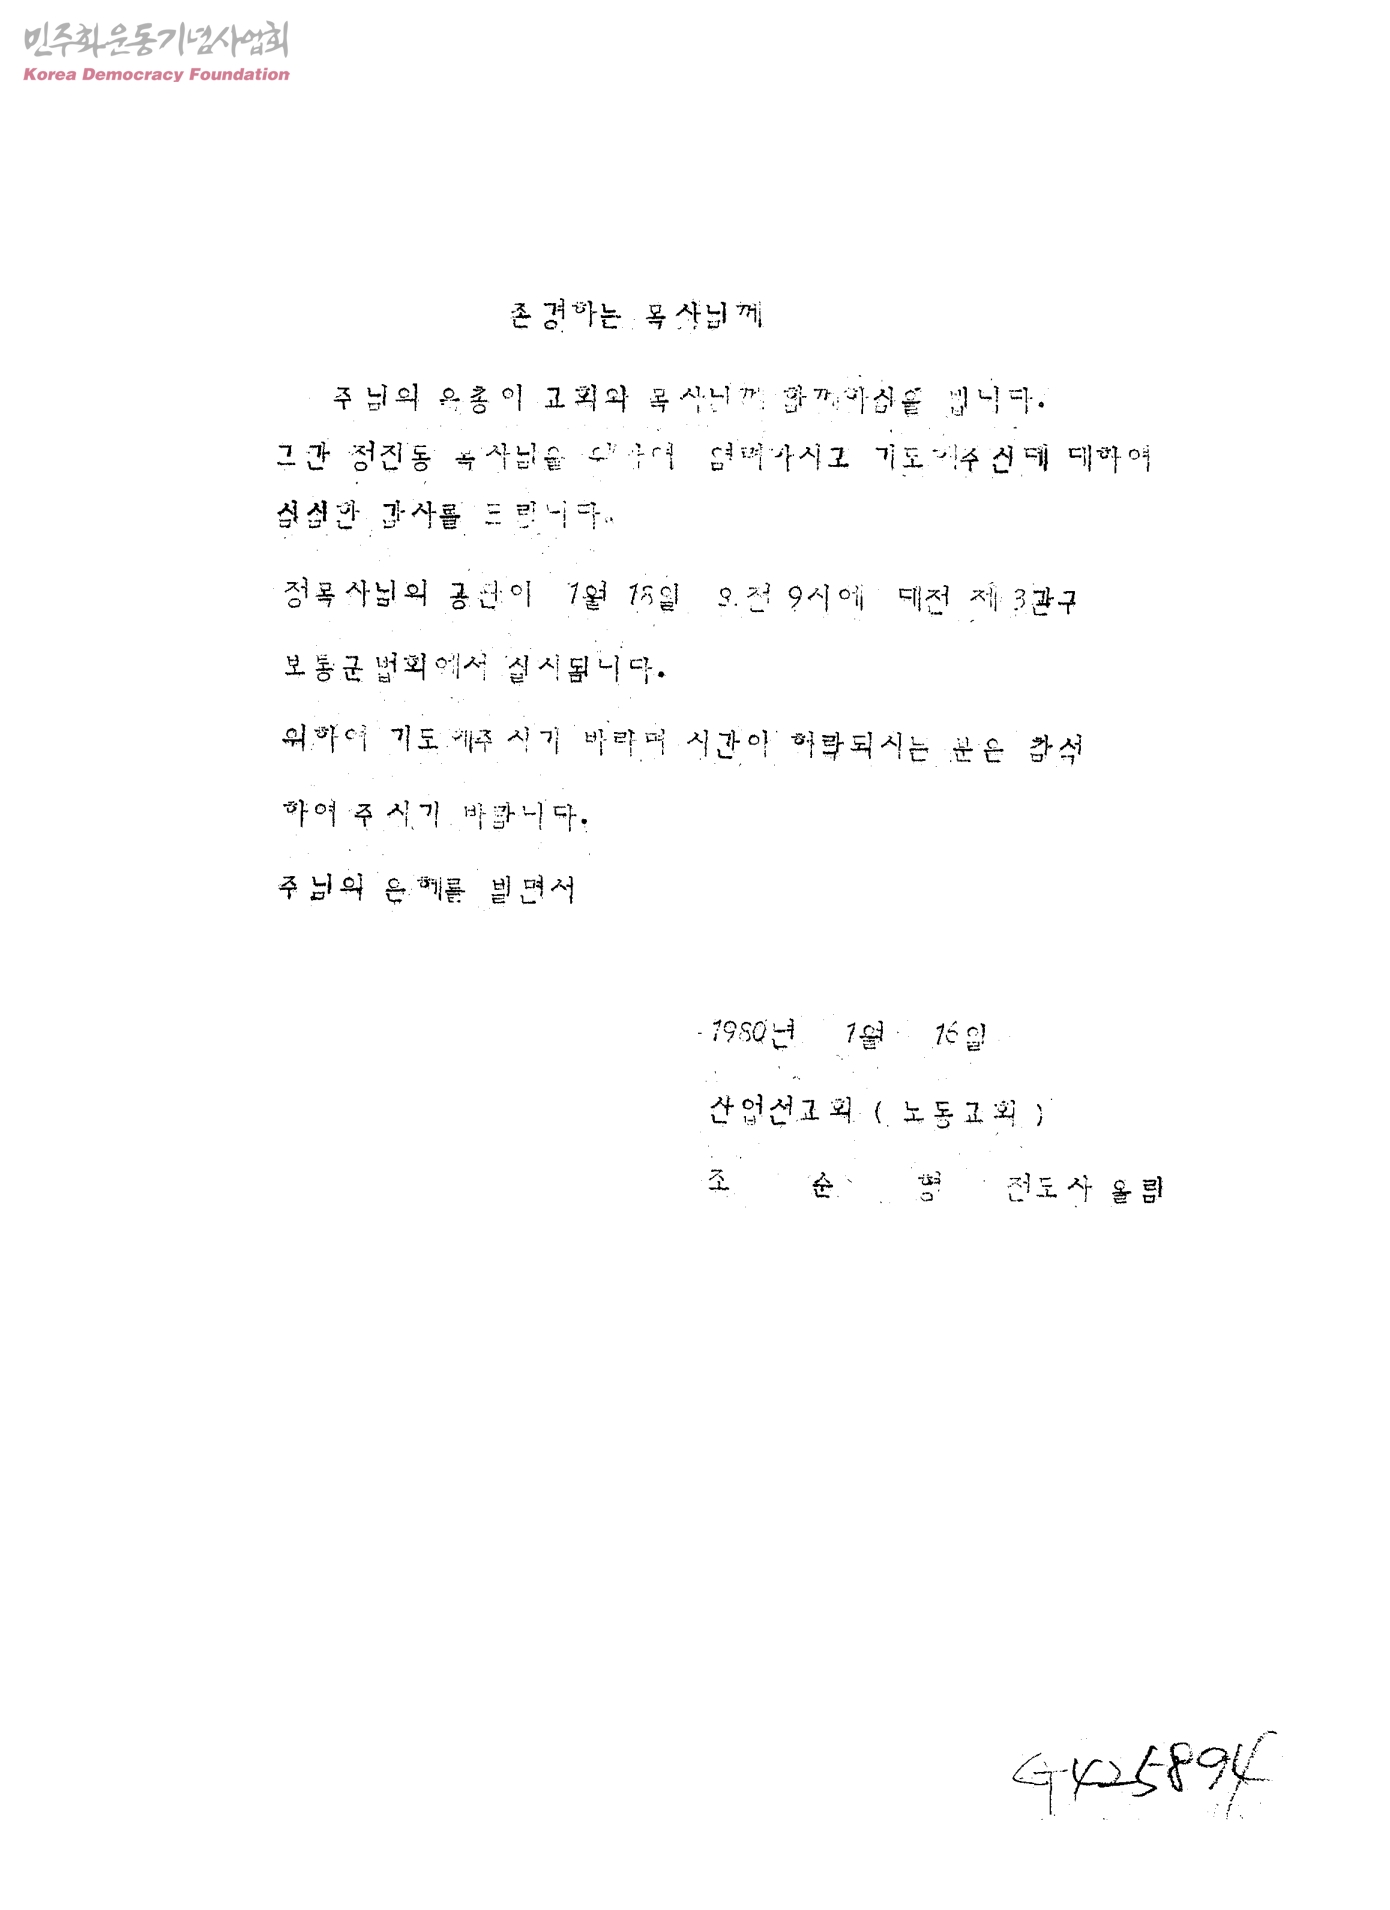 민주화운동기념사업회
Korea Democracy Foundation
존경하는 목사님께
주님의 은총이 교회와 목사님께 함께하심을 빕니다.
그간 정진동 목사님을 위하여 염려하시고 기도해주신데 대하여
심심한 감사를 드립니다.
정목사님의 공판이 1월 18일 오전 9시에 대전 제 3관구
보통군법회에서 실시됩니다.
위하여 기도해주시기 바라며 시간이 허락되시는 분은 참석
하여 주시기 바랍니다.
주님의 은혜를 빌면서
1980년 1월 16일
산업선교회 ( 노동교회 )
조 순 형 전도사 올림
G425894